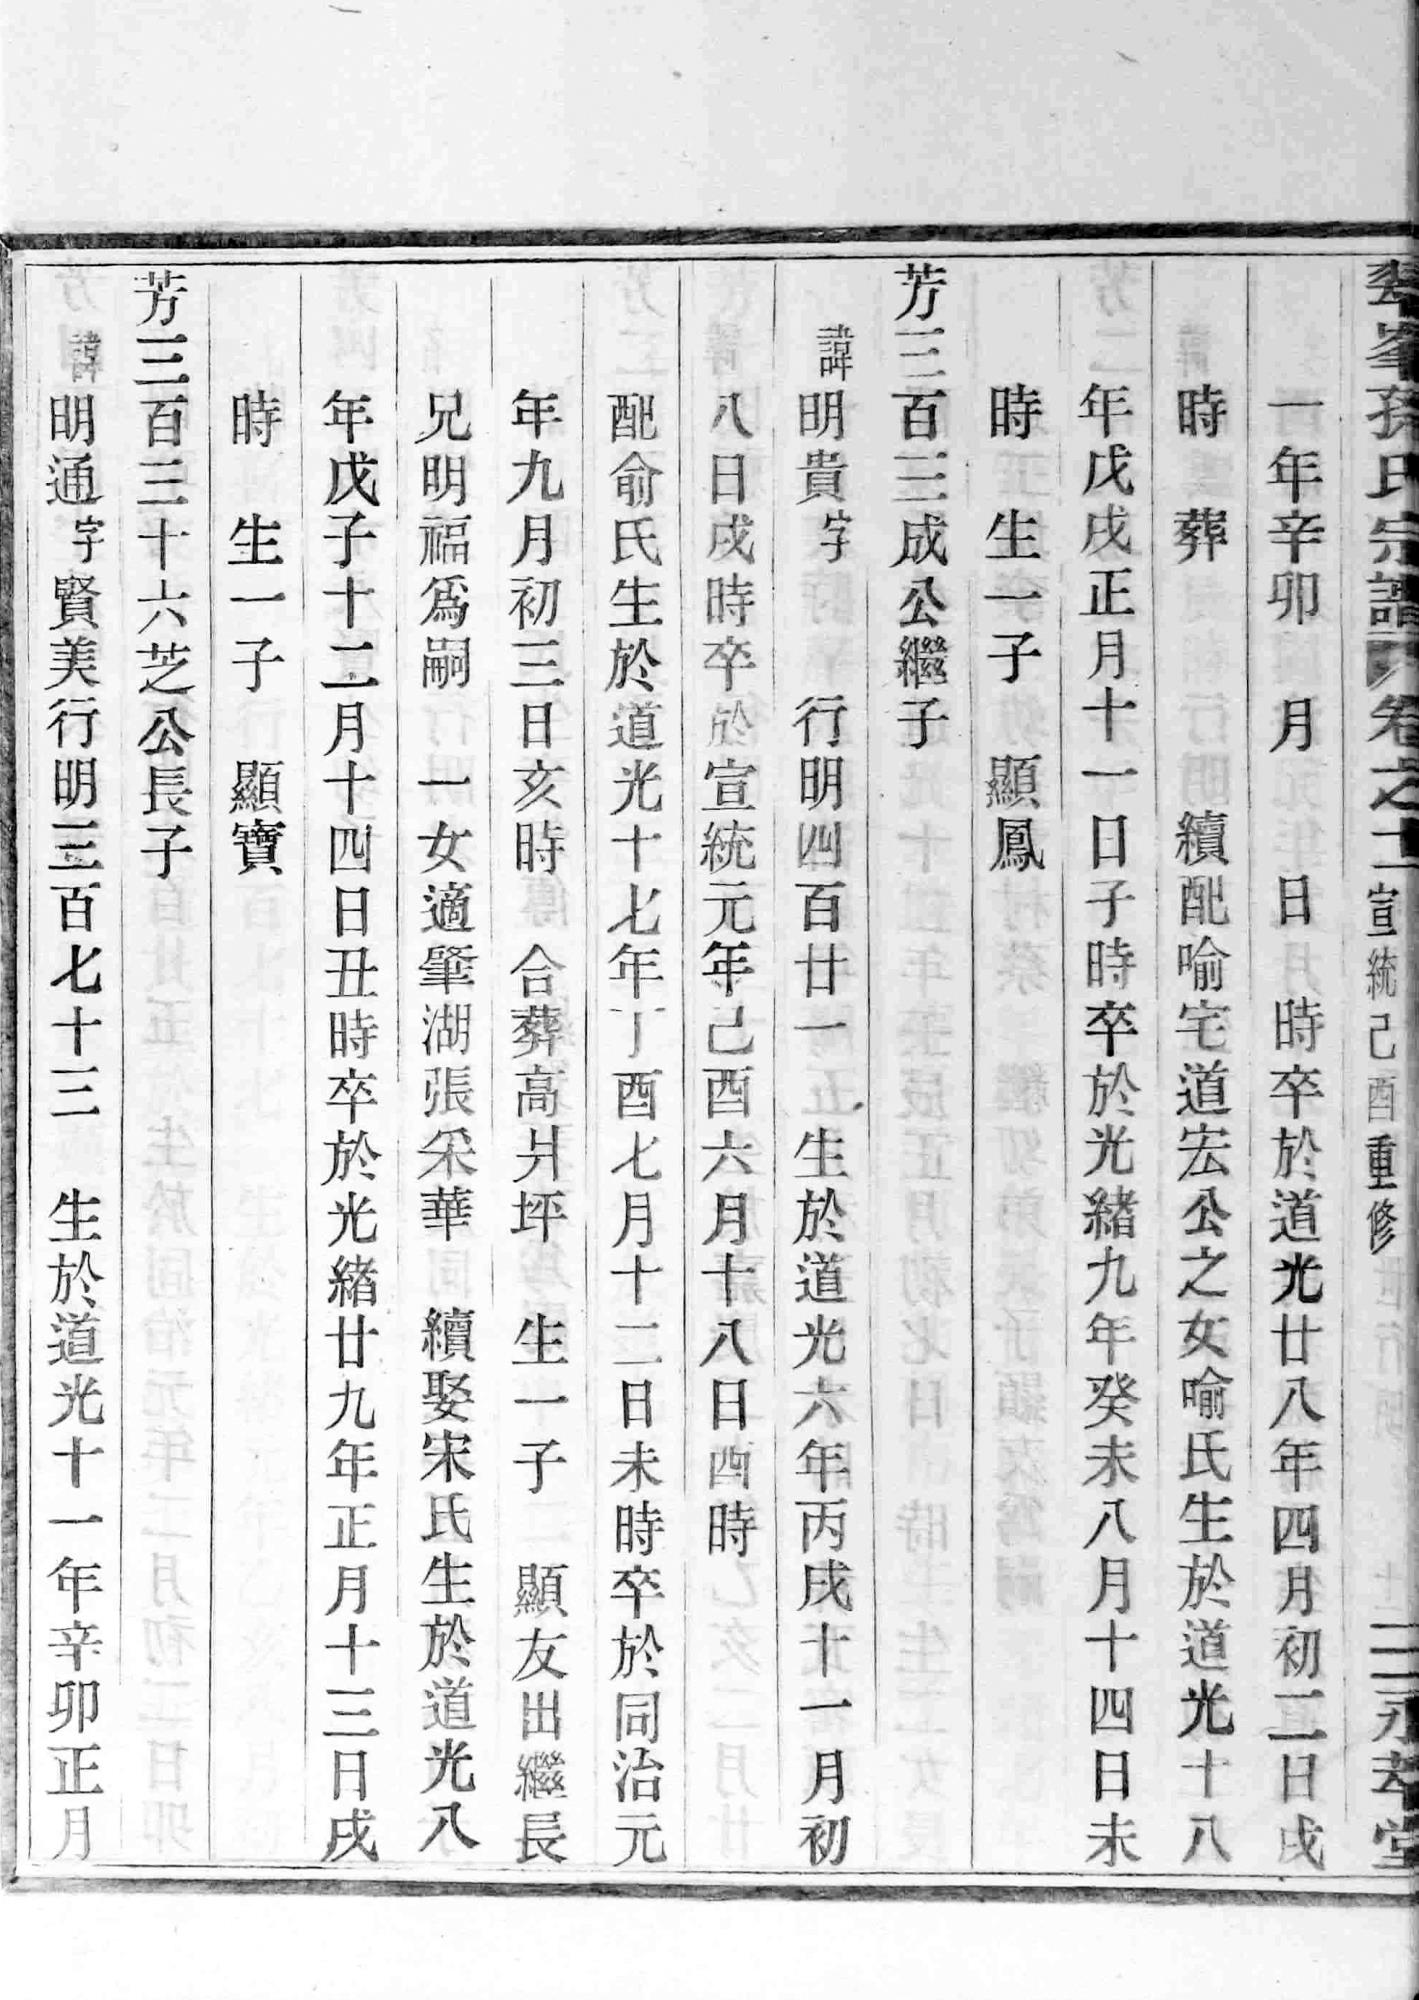 峯孫氏宗譜 卷之十一 宣統己酉重修 二 永萃堂
一年辛卯 月 日 時卒於道光廿八年四月初二日戌
時 葬 續配喻宅道宏公之女喻氏生於道光十八
年戊戌正月十一日子時卒於光緒九年癸未八月十四日未
時 生一子 顯鳳
芳三百三成公繼子
諱明貴字 行明四百廿一 生於道光六年丙戌十一月初
八日戌時卒於宣統元年己酉六月十八日酉時
配俞氏生於道光十七年丁酉七月十二日未時卒於同治元
年九月初三日亥時 合葬高爿坪 生一子 顯友出繼長
兄明福爲嗣 一女適肇湖張采華 續娶宋氏生於道光八
年戊子十二月十四日丑時卒於光緒廿九年正月十三日戌
時 生一子 顯寶
芳三百三十六芝公長子
諱明通字賢美行明三百七十三 生於道光十一年辛卯正月